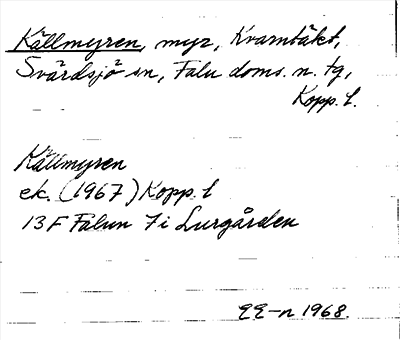 Källmyren, myr, Kvarntäkt,
Svärdsjö sn, Falu doms. n. tg,
Kopp. l.
Källmyren
ek. (1967) Kopp. l
13 F Falun 7 i Lurgården
EE-n 1968.